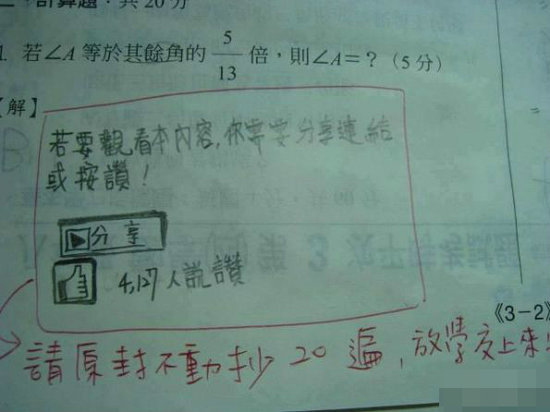 計算題：共20分
1. 若∠A等於其餘角的 5/13 倍，則∠A=？（5分）
【解】
若要觀看本內容,你需要分享連結
或按讚！
分享
4,127人說讚
《3-2》
請原封不動抄20遍,放學交上來!